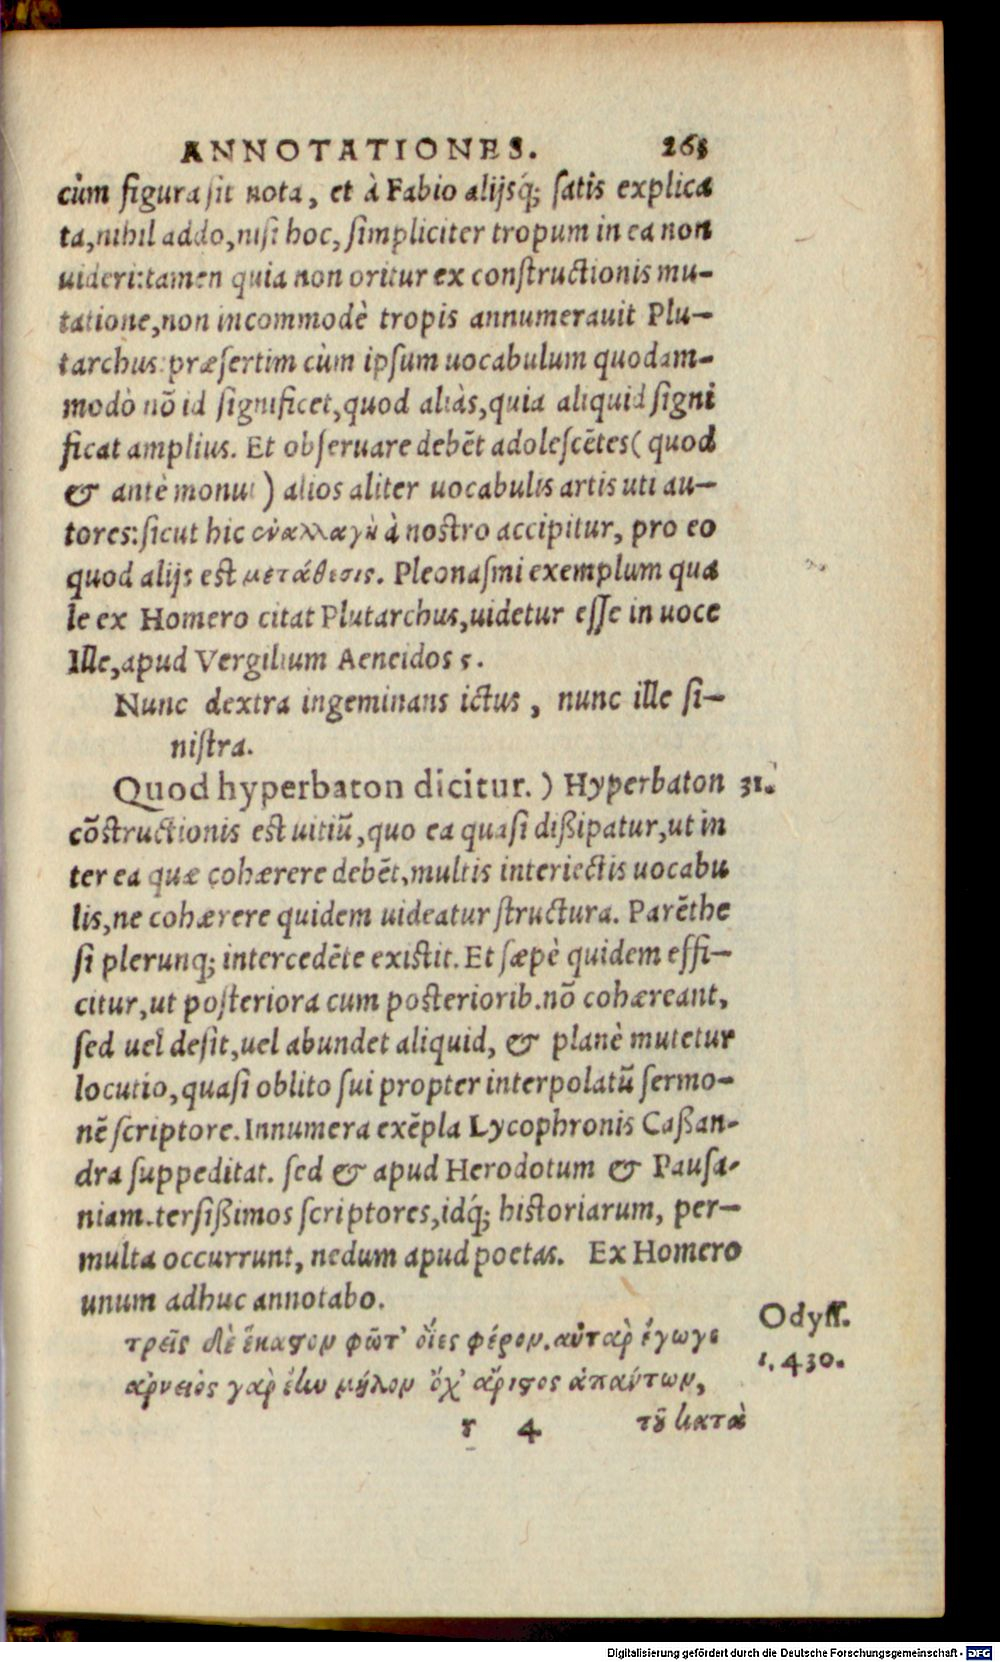 ANNOTATIONES. 265
cùm figura sit nota, et à Fabio alijsq́; satis explica
ta, nihil addo, nisi hoc, simpliciter tropum in ea non
uideri: tamen quia non oritur ex constructionis mu-
tatione, non incommodè tropis annumerauit Plu-
tarchus: præsertim cùm ipsum uocabulum quodam-
modò nō id significet, quod aliàs, quia aliquid signi
ficat amplius. Et obseruare debēt adolescētes (quod
& antè monui) alios aliter uocabulis artis uti au-
tores: sicut hic ἐναλλαγὴ à nostro accipitur, pro eo
quod alijs est μετάθεσις. Pleonasmi exemplum qua
le ex Homero citat Plutarchus, uidetur esse in uoce
Ille, apud Vergilium Aeneidos 5.
Nunc dextra ingeminans ictus, nunc ille si-
nistra.
Quod hyperbaton dicitur.) Hyperbaton 31.
cōstructionis est uitiū, quo ea quasi dißipatur, ut in
ter ea quæ cohærere debēt, multis interiectis uocabu
lis, ne cohærere quidem uideatur structura. Parēthe
si plerunq; intercedēte existit. Et sæpè quidem effi-
citur, ut posteriora cum posteriorib. nō cohæreant,
sed uel desit, uel abundet aliquid, & planè mutetur
locutio, quasi oblito sui propter interpolatū sermo-
nē scriptore. Innumera exēpla Lycophronis Caßan-
dra suppeditat. sed & apud Herodotum & Pausa-
niam tersißimos scriptores, idq́; historiarum, per-
multa occurrunt, nedum apud poetas. Ex Homero
unum adhuc annotabo.
Odyss.
1. 430.
τρεῖς δὲ ἕκαστον φῶτ' ὄϊες φέρον. αὐτὰρ ἔγωγε
ἀρνειὸς γὰρ ἔην μήλον ὄχ' ἄριστος ἁπάντων,
r 4 τοῦ κατὰ
Digitalisierung gefördert durch die Deutsche Forschungsgemeinschaft - DFG